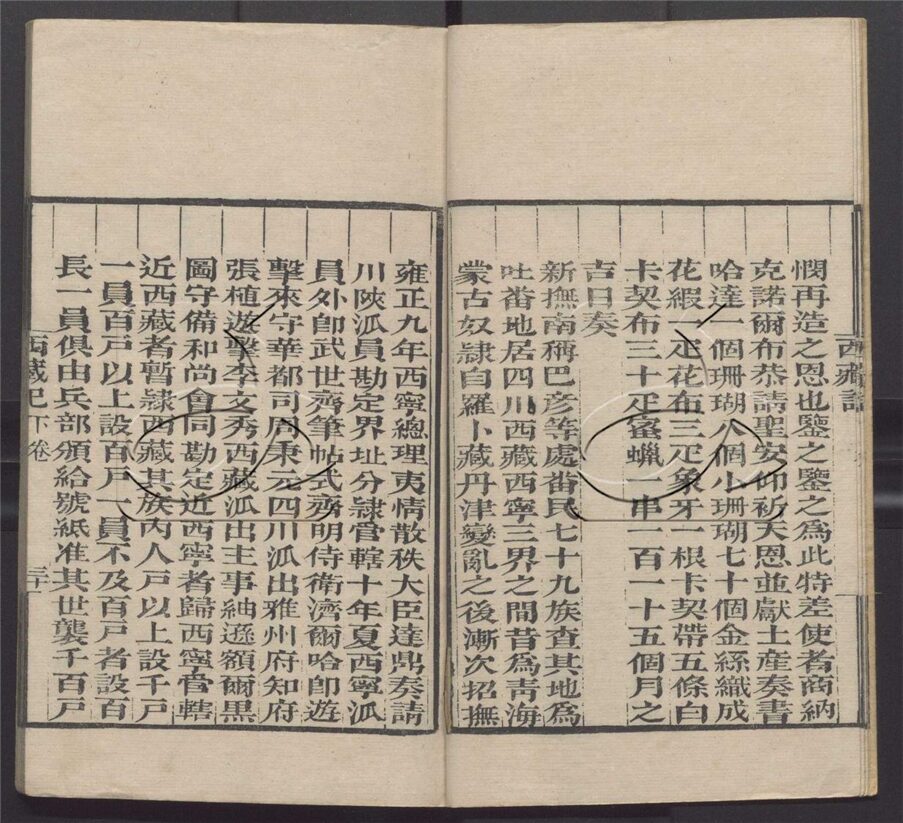 憫再造之恩也鑒之鑒之爲此特差使者商納
克諾爾布恭請聖安仰祈天恩並獻土産奏書
哈達一個珊瑚八個小珊瑚七十個金絲織成
花緞一疋花布三疋象牙一根卡契帶五條白
卡契布三十疋蜜蠟一串一百一十五個月之
吉日奏
新撫南稱巴彥等處畨民七十九族查其地爲
吐畨地居四川西藏西寧三界之間昔爲靑海
蒙古奴隸自羅卜藏丹津變亂之後漸次招撫
雍正九年西寧總理夷情散秩大臣達鼎奏請
川陝派員勘定界址分隸管轄十年夏西寧派
員外郎武世齊筆帖式齊明侍衛濟爾哈郎遊
擊來守華都司周秉元四川派出雅州府知府
張植遊擊李文秀西藏派出主事紬遜額爾黑
圖守備和尚會同勘定近西寧者歸西寧管轄
近西藏者暫隸西藏其族內人戶以上設千戶
一員百戶以上設百戶一員不及百戶者設百
長一員俱由兵部頒給號紙准其世襲千百戶
西藏記下卷